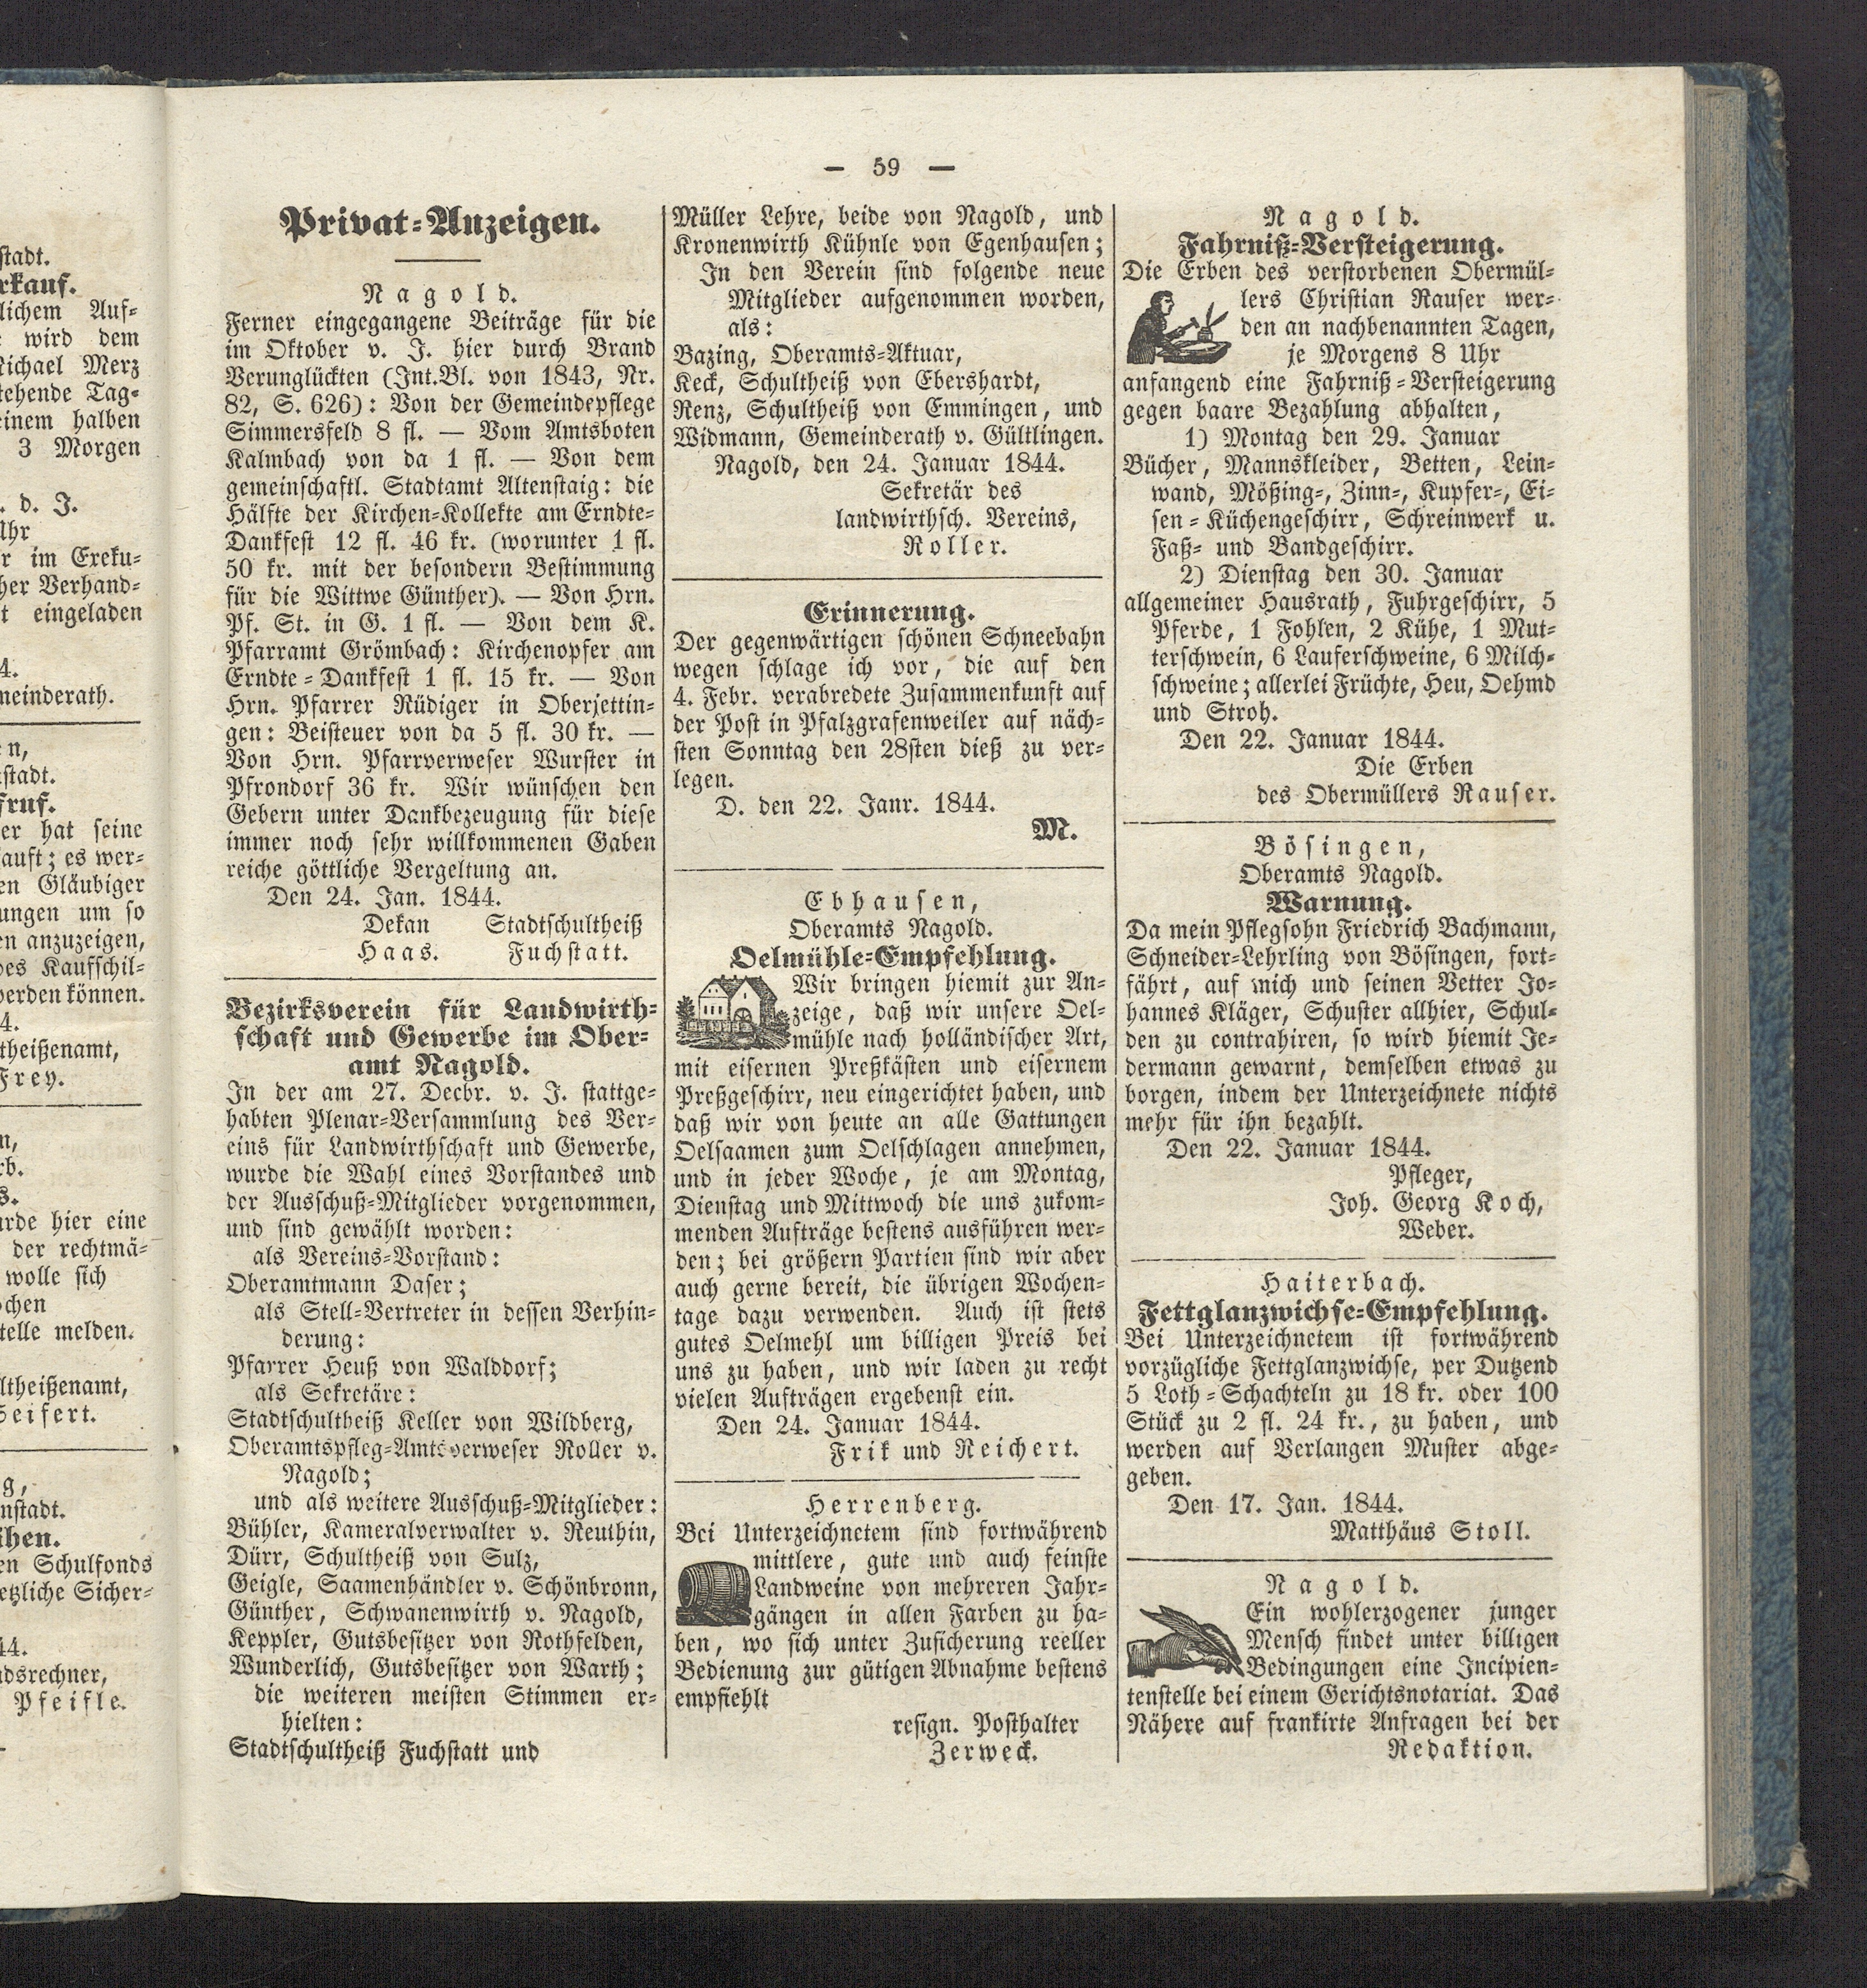 stadt.
rkauf.
lichem Auf-
wird dem
Michael Merz
tehende Tag-
einem halben
3 Morgen
. d. J.
Uhr
r im Exeku-
her Verhand-
t eingeladen
4.
meinderath.
n,
stadt.
fruf.
er hat seine
auft; es wer-
en Gläubiger
ungen um so
en anzuzeigen,
des Kaufschil-
werden können.
4.
theißenamt,
Frey.
n,
rb.
s.
urde hier eine
der rechtmä-
wolle sich
ochen
telle melden.
ltheißenamt,
Seifert.
g,
nstadt.
ihen.
en Schulfonds
etzliche Sicher-
44.
ndsrechner,
Pfeifle.
— 59 —
Privat-Anzeigen.
Nagold.
Ferner eingegangene Beiträge für die
im Oktober v. J. hier durch Brand
Verunglückten (Int.Bl. von 1843, Nr.
82, S. 626): Von der Gemeindepflege
Simmersfeld 8 fl. — Vom Amtsboten
Kalmbach von da 1 fl. — Von dem
gemeinschaftl. Stadtamt Altenstaig: die
Hälfte der Kirchen-Kollekte am Erndte-
Dankfest 12 fl. 46 kr. (worunter 1 fl.
50 kr. mit der besondern Bestimmung
für die Wittwe Günther). — Von Hrn.
Pf. St. in G. 1 fl. — Von dem K.
Pfarramt Grömbach: Kirchenopfer am
Erndte-Dankfest 1 fl. 15 kr. — Von
Hrn. Pfarrer Rüdiger in Oberjettin-
gen: Beisteuer von da 5 fl. 30 kr. —
Von Hrn. Pfarrverweser Wurster in
Pfrondorf 36 kr. Wir wünschen den
Gebern unter Dankbezeugung für diese
immer noch sehr willkommenen Gaben
reiche göttliche Vergeltung an.
Den 24. Jan. 1844.
Dekan Stadtschultheiß
Haas. Fuchstatt.
Bezirksverein für Landwirth-
schaft und Gewerbe im Ober-
amt Nagold.
In der am 27. Decbr. v. J. stattge-
habten Plenar-Versammlung des Ver-
eins für Landwirthschaft und Gewerbe,
wurde die Wahl eines Vorstandes und
der Ausschuß-Mitglieder vorgenommen,
und sind gewählt worden:
als Vereins-Vorstand:
Oberamtmann Daser;
als Stell-Vertreter in dessen Verhin-
derung:
Pfarrer Heuß von Walddorf;
als Sekretäre:
Stadtschultheiß Keller von Wildberg,
Oberamtspfleg-Amtsverweser Roller v.
Nagold;
und als weitere Ausschuß-Mitglieder:
Bühler, Kameralverwalter v. Reuthin,
Dürr, Schultheiß von Sulz,
Geigle, Saamenhändler v. Schönbronn,
Günther, Schwanenwirth v. Nagold,
Keppler, Gutsbesitzer von Rothfelden,
Wunderlich, Gutsbesitzer von Warth;
die weiteren meisten Stimmen er-
hielten:
Stadtschultheiß Fuchstatt und
Müller Lehre, beide von Nagold, und
Kronenwirth Kühnle von Egenhausen;
In den Verein sind folgende neue
Mitglieder aufgenommen worden,
als:
Bazing, Oberamts-Aktuar,
Keck, Schultheiß von Ebershardt,
Renz, Schultheiß von Emmingen, und
Widmann, Gemeinderath v. Gültlingen.
Nagold, den 24. Januar 1844.
Sekretär des
landwirthsch. Vereins,
Roller.
Erinnerung.
Der gegenwärtigen schönen Schneebahn
wegen schlage ich vor, die auf den
4. Febr. verabredete Zusammenkunft auf
der Post in Pfalzgrafenweiler auf näch-
sten Sonntag den 28sten dieß zu ver-
legen.
D. den 22. Janr. 1844.
M.
Ebhausen,
Oberamts Nagold.
Oelmühle-Empfehlung.
Wir bringen hiemit zur An-
zeige, daß wir unsere Oel-
mühle nach holländischer Art,
mit eisernen Preßkästen und eisernem
Preßgeschirr, neu eingerichtet haben, und
daß wir von heute an alle Gattungen
Oelsaamen zum Oelschlagen annehmen,
und in jeder Woche, je am Montag,
Dienstag und Mittwoch die uns zukom-
menden Aufträge bestens ausführen wer-
den; bei größern Partien sind wir aber
auch gerne bereit, die übrigen Wochen-
tage dazu verwenden. Auch ist stets
gutes Oelmehl um billigen Preis bei
uns zu haben, und wir laden zu recht
vielen Aufträgen ergebenst ein.
Den 24. Januar 1844.
Frik und Reichert.
Herrenberg.
Bei Unterzeichnetem sind fortwährend
mittlere, gute und auch feinste
Landweine von mehreren Jahr-
gängen in allen Farben zu ha-
ben, wo sich unter Zusicherung reeller
Bedienung zur gütigen Abnahme bestens
empfiehlt
resign. Posthalter
Zerweck.
Nagold.
Fahrniß-Versteigerung.
Die Erben des verstorbenen Obermül-
lers Christian Rauser wer-
den an nachbenannten Tagen,
je Morgens 8 Uhr
anfangend eine Fahrniß-Versteigerung
gegen baare Bezahlung abhalten,
1) Montag den 29. Januar
Bücher, Mannskleider, Betten, Lein-
wand, Mößing-, Zinn-, Kupfer-, Ei-
sen-Küchengeschirr, Schreinwerk u.
Faß- und Bandgeschirr.
2) Dienstag den 30. Januar
allgemeiner Hausrath, Fuhrgeschirr, 5
Pferde, 1 Fohlen, 2 Kühe, 1 Mut-
terschwein, 6 Lauferschweine, 6 Milch-
schweine; allerlei Früchte, Heu, Oehmd
und Stroh.
Den 22. Januar 1844.
Die Erben
des Obermüllers Rauser.
Bösingen,
Oberamts Nagold.
Warnung.
Da mein Pflegsohn Friedrich Bachmann,
Schneider-Lehrling von Bösingen, fort-
fährt, auf mich und seinen Vetter Jo-
hannes Kläger, Schuster allhier, Schul-
den zu contrahiren, so wird hiemit Je-
dermann gewarnt, demselben etwas zu
borgen, indem der Unterzeichnete nichts
mehr für ihn bezahlt.
Den 22. Januar 1844.
Pfleger,
Joh. Georg Koch,
Weber.
Haiterbach.
Fettglanzwichse-Empfehlung.
Bei Unterzeichnetem ist fortwährend
vorzügliche Fettglanzwichse, per Dutzend
5 Loth-Schachteln zu 18 kr. oder 100
Stück zu 2 fl. 24 kr., zu haben, und
werden auf Verlangen Muster abge-
geben.
Den 17. Jan. 1844.
Matthäus Stoll.
Nagold.
Ein wohlerzogener junger
Mensch findet unter billigen
Bedingungen eine Incipien-
tenstelle bei einem Gerichtsnotariat. Das
Nähere auf frankirte Anfragen bei der
Redaktion.